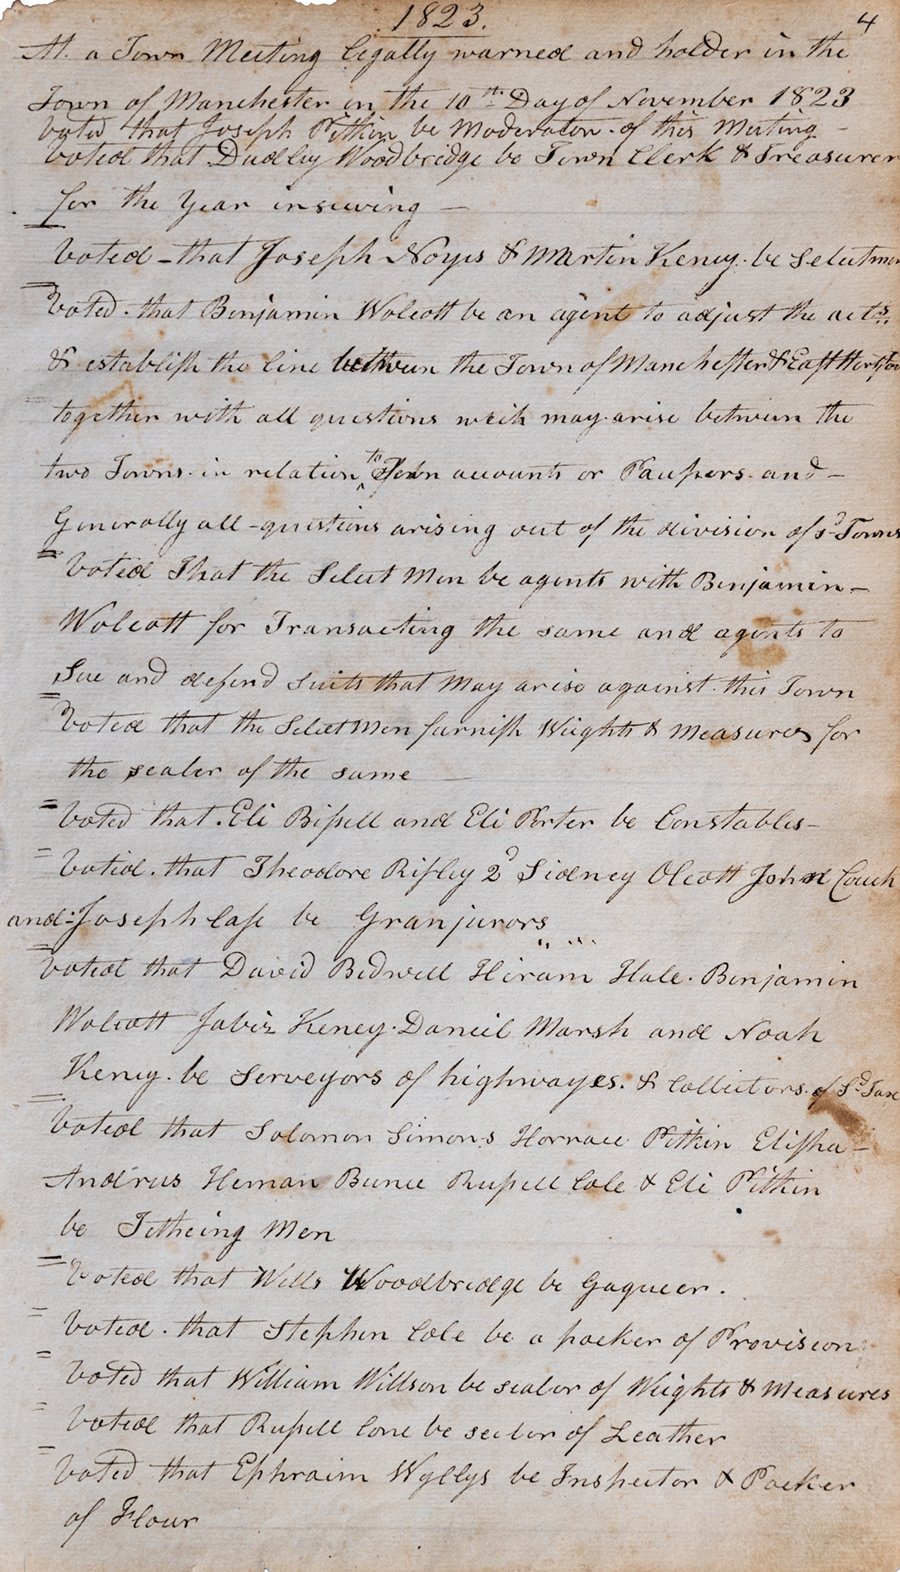 1823.
4
At a Town Meeting legally warned and holden in the
Town of Manchester on the 10th Day of November 1823
Voted that Joseph Pitkin be Moderator of this Meeting -
Voted that Dudley Woodbridge be Town Clerk & Treasurer
for the Year insueing —
Voted - that Joseph Noyes & Martin Keney. be Selectmen
Voted. that Benjamin Wolcott be an agent to adjust the acts.
& establish the line between the Town of Manchester & East Hartford
together with all questions wich may arise between the
two Towns in relation to Town accounts or Paupers. and -
Generally all - questions arising out of the division of sd Towns
Voted That the Select Men be agents with Benjamin -
Wolcott for Transacting the same and agents to
Sue and defend Suits that May arise against this Town
Voted that the Select Men furnish Weights & Measures for
the sealer of the same —
Voted that. Eli Bissell and Eli Porter be Constables -
Voted. that Theodore Ripley 2d Sidney Olcott John Couch
and Joseph Case be Granjurors
Voted that David Bidwell Hiram Hale. Benjamin
Wolcott Jabiz Keney. Daniel Marsh and Noah
Keney. be Serveyors of highwayes. & Collectors. of Sd Tax
Voted that Solomon Simons Horrace Pitkin Elisha -
Andrus Heman Bunce Russell Cole & Eli Pitkin
be Titheing Men
Voted that Wells Woodbridge be Gagueer.
Voted. that Stephen Cole be a packer of Provision
Voted that William Willson be sealer of Weights & Measures
Voted that Russell Cone be sealer of Leather
Voted that Ephraim Wyllys be Inspector & Packer
of Flour